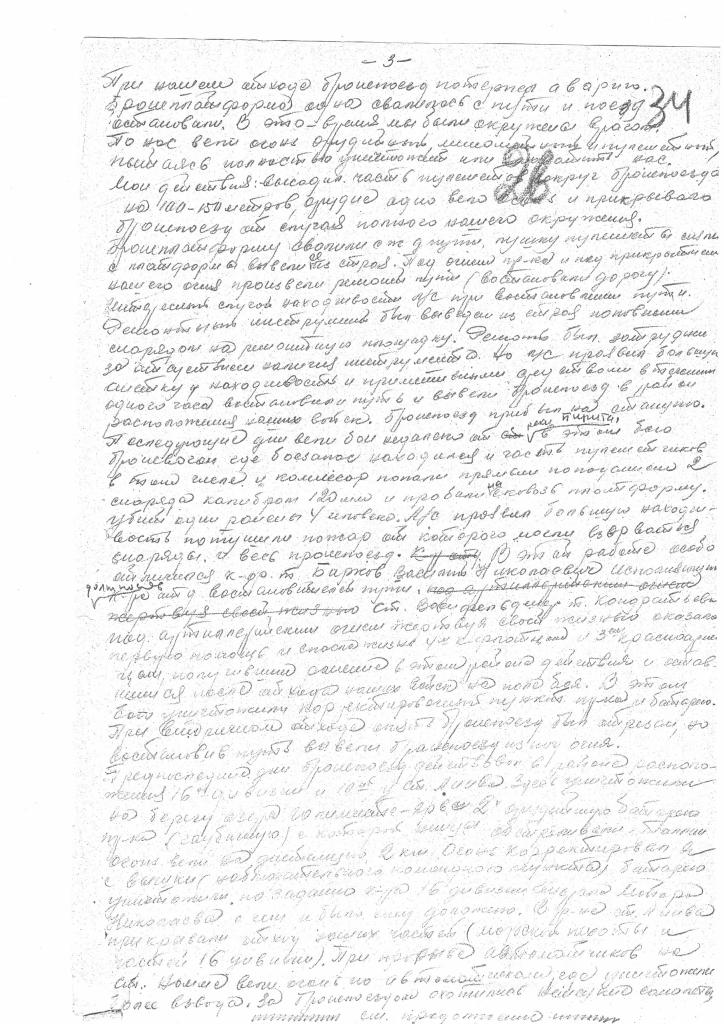 - 3 -
При нашем отходе бронепоезд потерпел аварию.
Бронеплатформа одна свалилась с пути и поезд 34
остановили. В это время мы были окружены врагом.
По нас вели огонь орудийный, минометный и пулеметный,
пытаясь полностью уничтожить или нас.
28
Мои действия: высадил часть пулеметов вокруг бронепоезда
на 100-150 метров, орудие одно вело огонь и прикрывало
бронепоезд от случая полного нашего окружения.
Бронеплатформу свалили с ж.д. пути, пушку пулеметы сняли
с платформы вывели из строя. Под огнем пр-ка и под прикрытием
нашего огня произвели ремонт пути (востановили дорогу).
Интересный случай находчивости л/с при востановлении пути.
Ремонтный инструмент был выведен из строя попавшим
снарядом на ремонтную площадку. Ремонт был затруднен
за отсутствием наличия инструмента. Но л/с проявил большую
смётку и находчивость и примитивными средствами в течении
одного часа востановили путь и вывели бронепоезд в район
расположения наших войск. Бронепоезд прибыл на станцию.
Последующие дни вели бои недалеко от в этом бою
бронвагон где боезапас находился и часть пулеметчиков
в том числе и комиссар попали прямым попаданием 2
снаряда калибром 120 мм и пробили насквозь платформу.
убит один ранены 4 человека. Л/с проявил большую находчи-
вость потушили пожар от которого могли взорваться
снаряды и весь бронепоезд. В этой работе особо
отличился к-ор т. Барков Василий Николаевич исполняющий
должность к-ра отд. востановителей пути. под артиллерийским огнем
жертвуя своей жизнью Ст. т. Кондратьева
под артиллерийским огнем жертвуя своей жизнью оказала
первую помощь и спасла жизнь 4х краснофлотцам и 3ем красноармей-
цам, получившим ранение в этом районе действия и остав-
шимся после отхода наших войск на поле боя. В этом
бою уничтожили корректировочный пункт пр-ка и батарею.
При вторичном отходе опять бронепоезд был отрезан, но
востановив путь вывели бронепоезд из под огня.
В последний дни бронепоезд действовал в районе располо-
жения 16й дивизии и у ст. Лигва. Здесь уничтожили
на берегу 2х орудийную батарею
пр-ка (гаубичную) с которой
огонь вели на дистанцию 2 км. Огонь корректировал я
с вышки (наблюдательного командного пункта) батарею
уничтожили по заданию к-ра 16 дивизии
Николаева о чем и было ему доложено. В р-не ст. Лигва
прикрывали отход наших частей (морской пехоты и
частей 16 дивизии). При прорыве автоматчиков на
ст. вели огонь по автоматчикам, где уничтожили
более взвода. За бронепоездом охотились немецкие самолеты,
см. продолжение